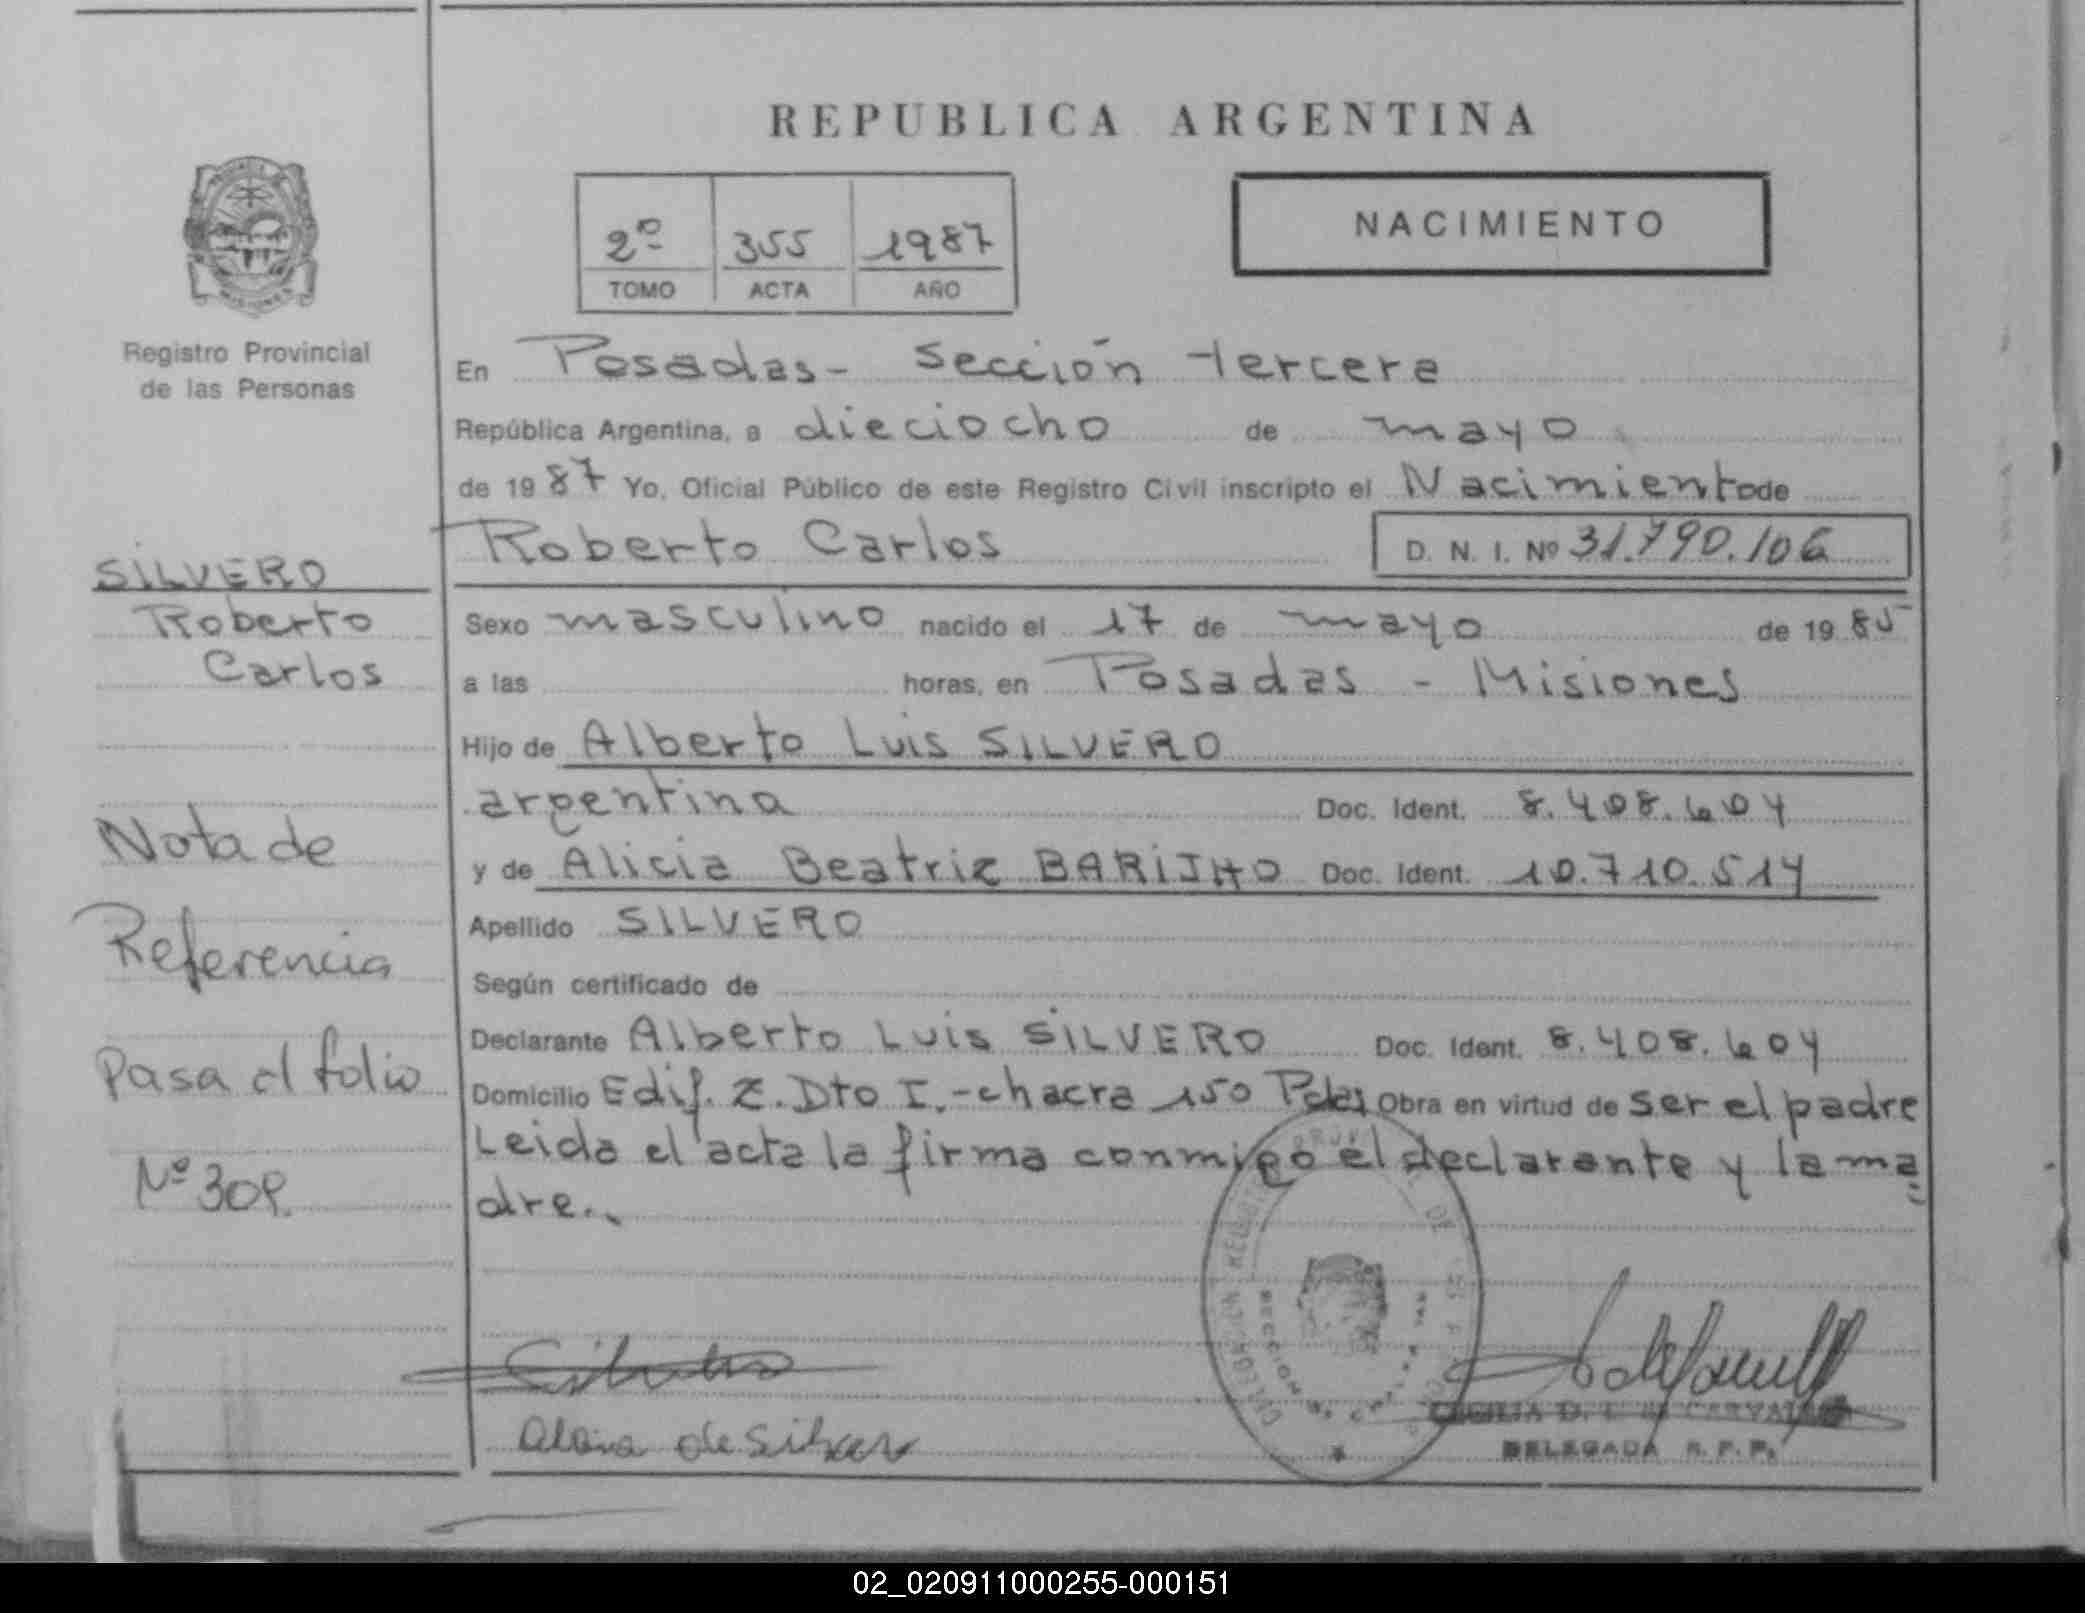 REPUBLICA ARGENTINA
2º 355 1987
TOMO ACTA AÑO
NACIMIENTO
MISIONES
Registro Provincial
de las Personas
En Posadas- Sección tercera
República Argentina, a dieciocho de mayo
de 1987 Yo, Oficial Público de este Registro Civil inscripto el Nacimiento de
Roberto Carlos D. N. I. Nº 31.790.106
Sexo masculino nacido el 17 de mayo de 1985
a las horas, en Posadas - Misiones
Hijo de Alberto Luis SILVERO
argentina Doc. Ident. 8.408.604
y de Alicia Beatriz Doc. Ident. 10.710.514
Apellido SILVERO
Según certificado de
Declarante Alberto Luis SILVERO Doc. Ident. 8.408.604
Domicilio Edif. Z. Dto I.-chacra 150 Pdas Obra en virtud de ser el padre
Leida el acta la firma conmigo el declarante y la ma
dre.-
SILVERO
Roberto
Carlos
Nota de
Referencia
Pasa al folio
Nº 309.
de
DELEGADA R. P. P.
02_020911000255-000151